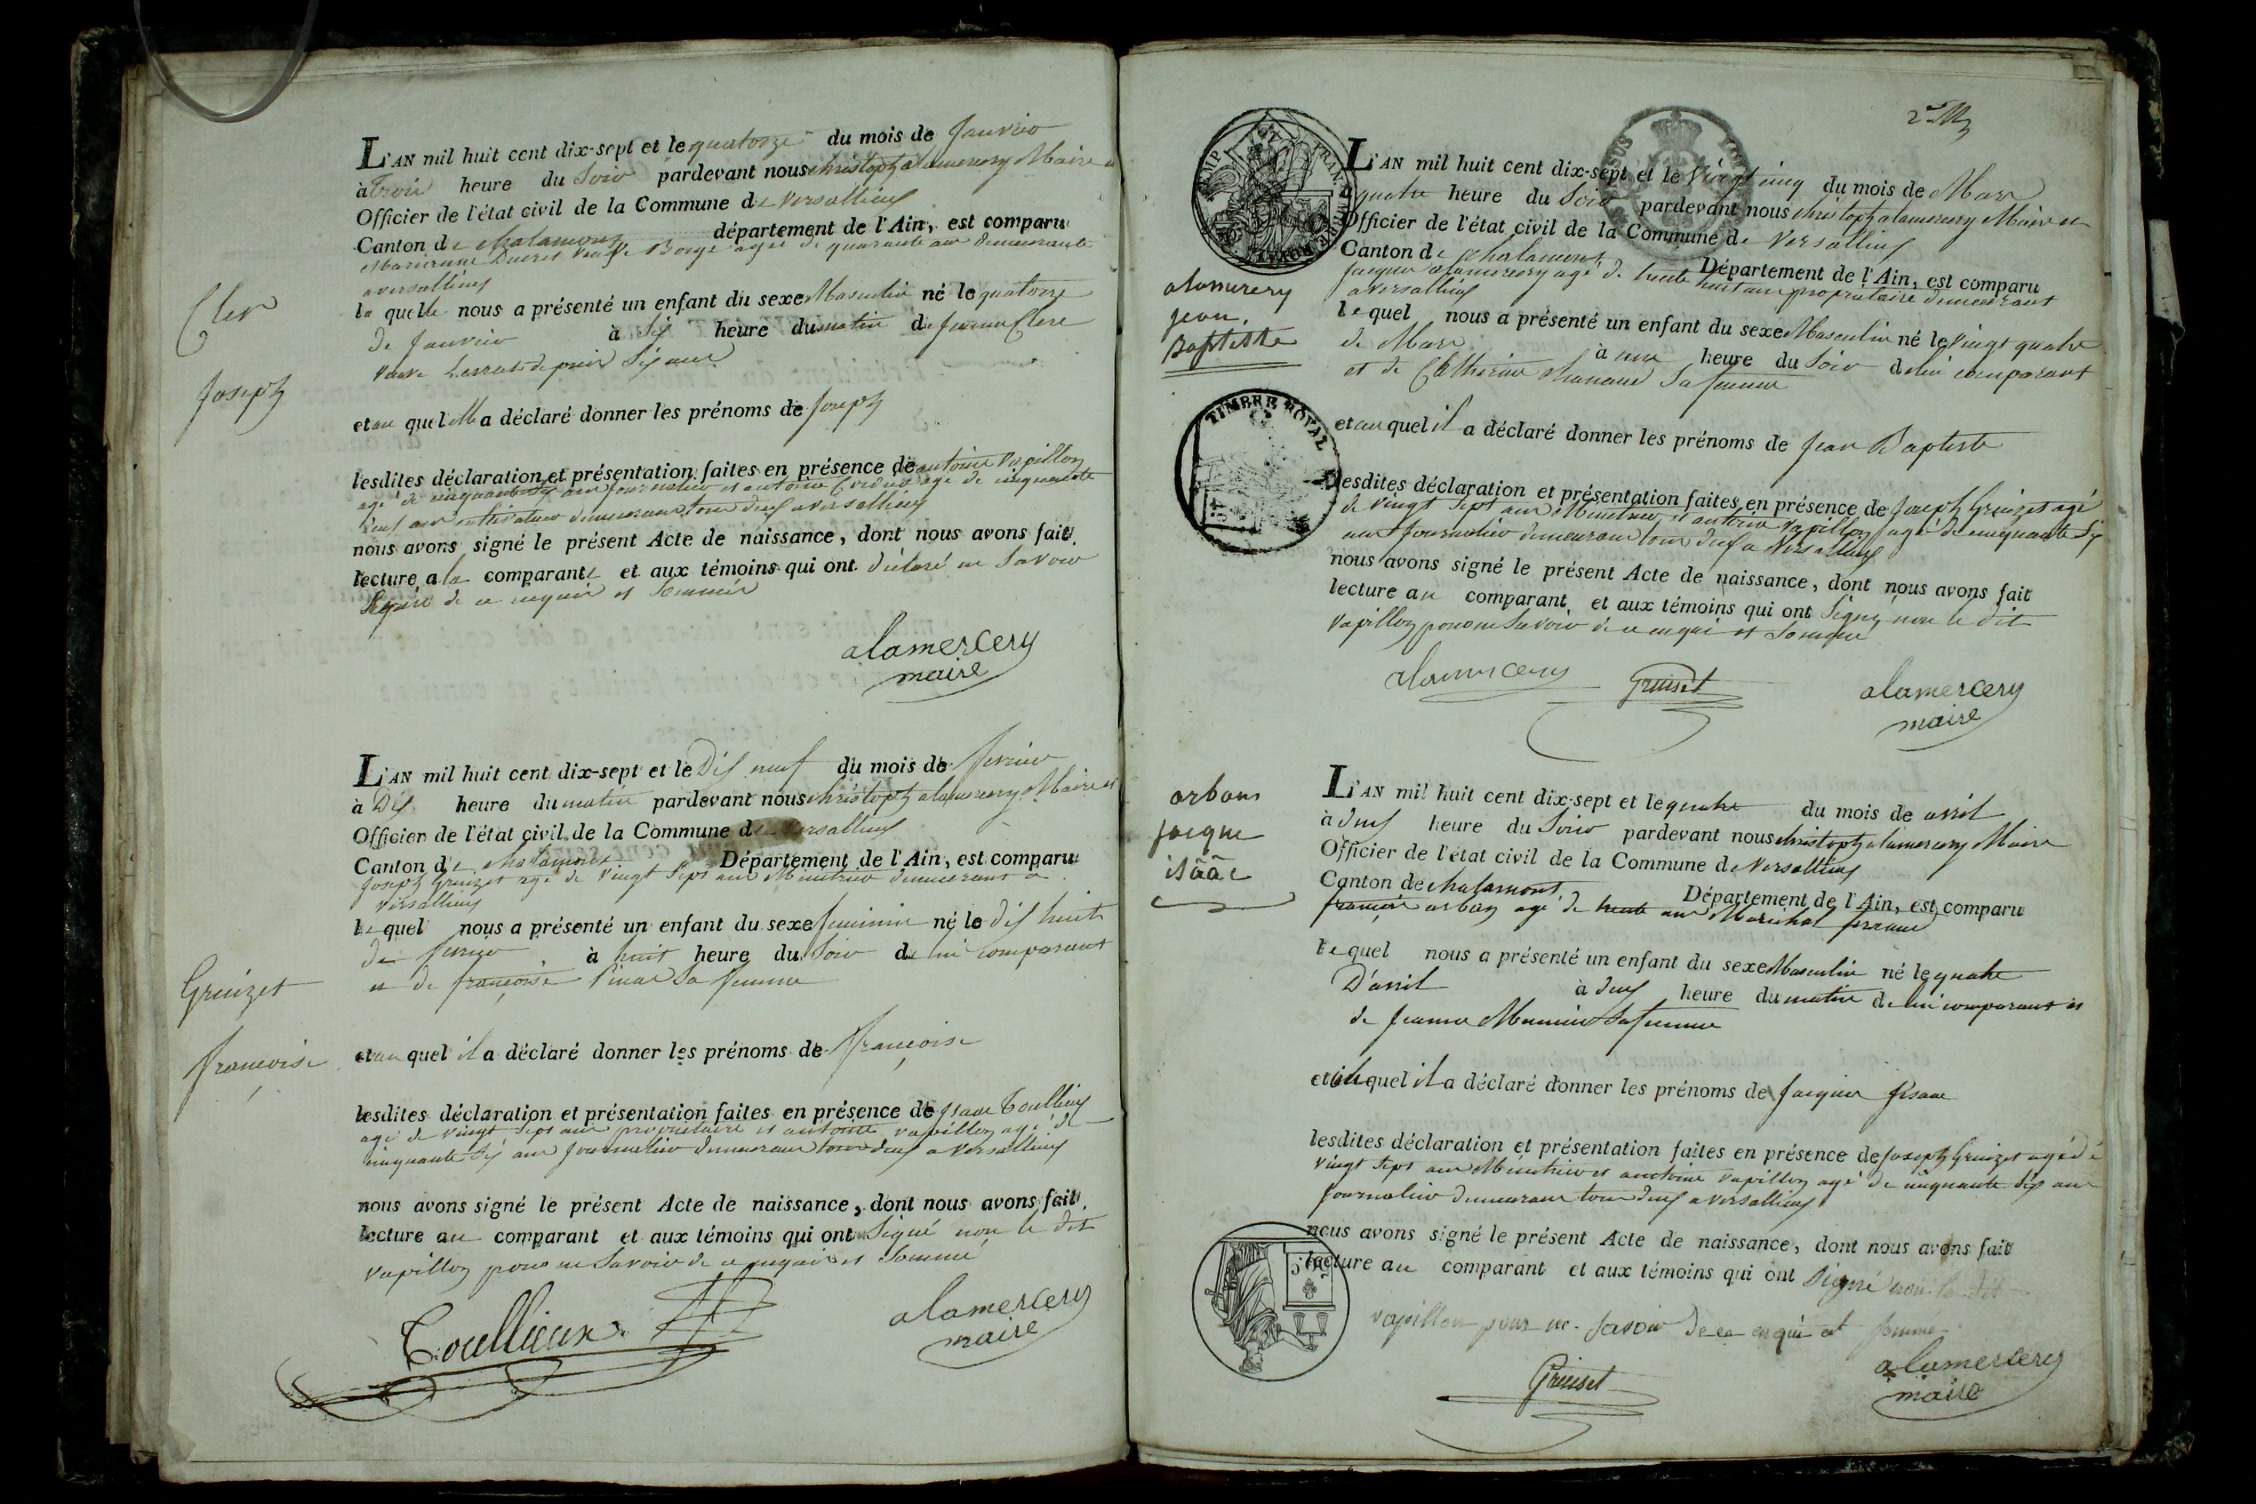 L'AN mil huit cent dix-sept et le quatorze du mois de Janvier
à trois heure du Soir pardevant nous christoph alamercery Maire et
Officier de l'état civil de la Commune de versallieux
Canton de chalamont département de l'Ain, est comparu
agée de quarante ans demeurante
a versallieux
la quelle nous a présenté un enfant du sexe Masculin né le quatorze
de Janvier à Six heure du matin de Jeanne Clere
veuve depuis Six ans
et au quel elle a déclaré donner les prénoms de Joseph
lesdites déclaration et présentation faites en présence de antoine vapillon
agé de cinquante Six ans Journalier et antoine agé de cinquante
neuf ans cultivateur demeurans tous deux a versallieux
nous avons signé le présent Acte de naissance, dont nous avons fait
lecture a la comparante et aux témoins qui ont déclaré ne Savoir
Signer de ce enquis et Sommés
alamercery
maire
Cler
Joseph
L'AN mil huit cent dix-sept et le Dix neuf du mois de fevrier
à Dix heure du matin pardevant nous christoph alamercery Maire et
Officier de l'état civil de la Commune de versallieux
Canton de chalamont Département de l'Ain, est comparu
Joseph Greuzet agé de vingt Sept ans Menetrier demeurant a
versallieux
le quel nous a présenté un enfant du sexe feminin né le dix huit
de fevrier à huit heure du Soir de lui comparant
et de françoise Pinat Sa femme
et au quel il a déclaré donner les prénoms de françoise
lesdites déclaration et présentation faites en présence de Isaac Toullieux
agé de vingt Sept ans propriétaire et antoine vapillon agé de
cinquante Six ans Journalier demeurans tous deux a versallieux
nous avons signé le présent Acte de naissance, dont nous avons fait
lecture au comparant et aux témoins qui ont Signé non le dit
vapillon pour ne Savoir de ce enquis et Sommé
Toullieux
alamercery
maire
Greuzet
francoise
2e
L'AN mil huit cent dix-sept et le vingt cinq du mois de Mars
a quatre heure du Soir pardevant nous christoph alamercery Maire et
Officier de l'état civil de la Commune de versallieux
Canton de chalamont Département de l'Ain, est comparu
Jacques alamercery agé de trente huit ans propriétaire demeurant
a versallieux
le quel nous a présenté un enfant du sexe Masculin né le vingt quatre
de Mars à une heure du Soir de lui comparant
et de Catherine Sa femme
et au quel il a déclaré donner les prénoms de Jean Baptiste
lesdites déclaration et présentation faites en présence de Joseph Greuzet agé
de vingt Sept ans Menetrier et antoine vapillon agé de cinquante Six
ans Journalier demeurans tous deux a versallieux
nous avons signé le présent Acte de naissance, dont nous avons fait
lecture au comparant et aux témoins qui ont Signé non le dit
vapillon pour ne Savoir de ce enquis et Sommé
alamercery
Greuset
alamercery
maire
alamercery
jean
Baptiste
TIMBRE ROYAL
L'AN mil huit cent dix-sept et le quatre du mois de avril
à deux heure du Soir pardevant nous christoph alamercery Maire
Officier de l'état civil de la Commune de versallieux
Canton de chalamont Département de l'Ain, est comparu
francois arban agé de trente ans Marechal ferrand
le quel nous a présenté un enfant du sexe Masculin né le quatre
D'avril à deux heure du matin de lui comparant et
de Jeanne Meunier Sa femme
et au quel il a déclaré donner les prénoms de Jacques Isaac
lesdites déclaration et présentation faites en présence de Joseph Greuzet agé de
vingt Sept ans Menetrier et antoine vapillon agé de cinquante Six ans
Journalier demeurans tous deux a versallieux
nous avons signé le présent Acte de naissance, dont nous avons fait
lecture au comparant et aux témoins qui ont Signé non le dit
vapillon pour ne Savoir de ce enquis et Sommé
Greuset
alamercery
maire
arban
jacque
isaac